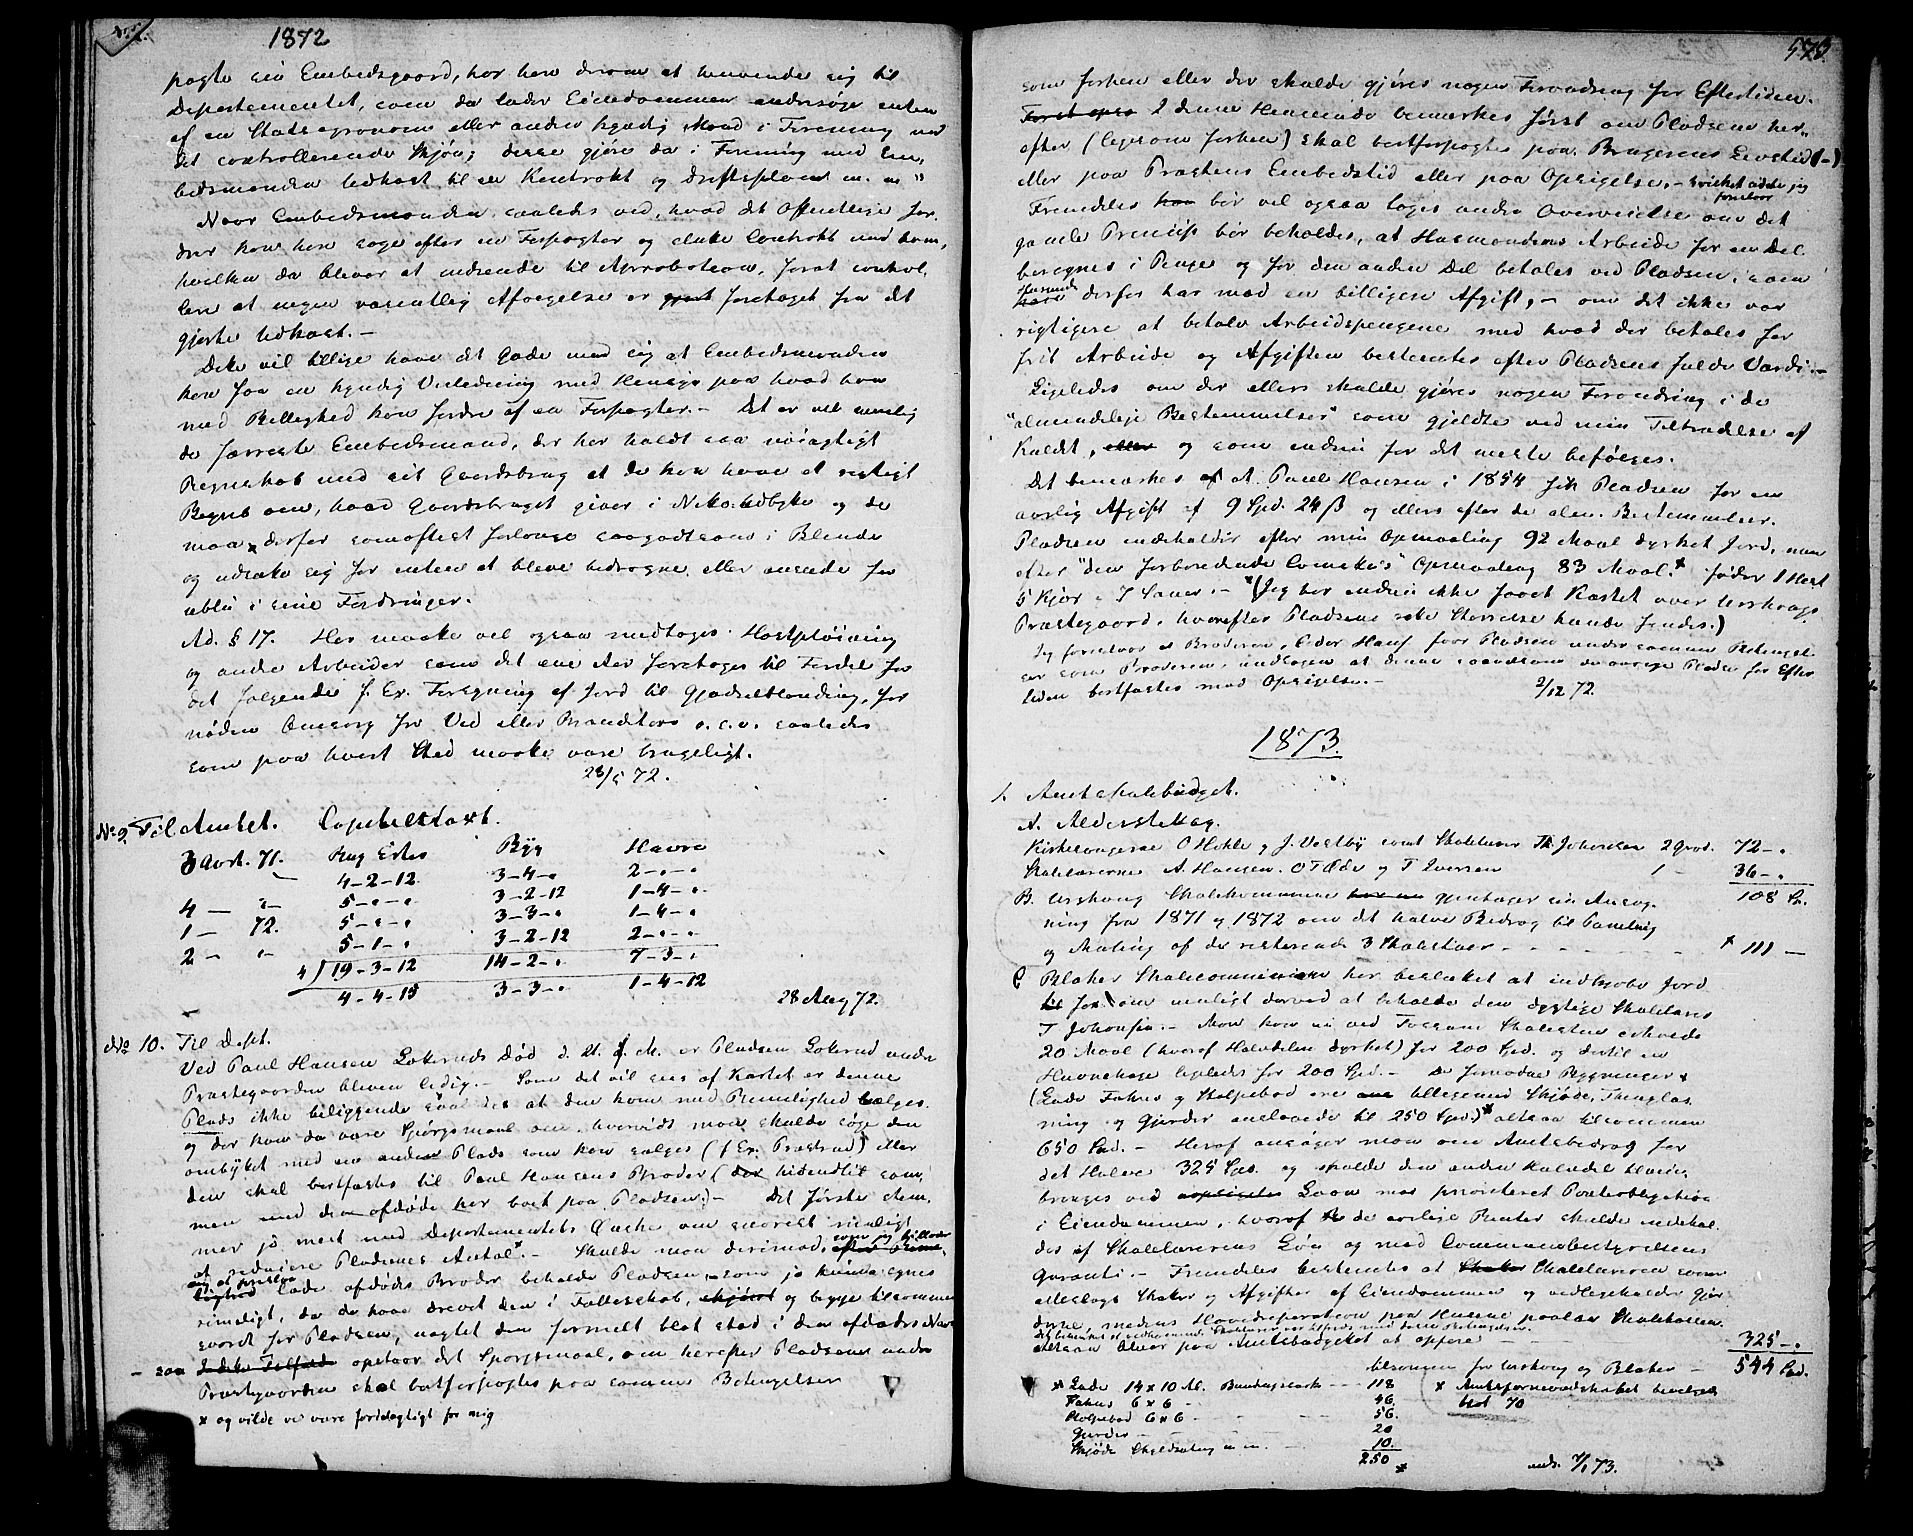 1872
pagte sin Embedsgaard, har han derom at henvende sig til
Departementet, som da lader Eiendommen undersøge enten
af en Statsagronom eller anden kyndig Mand i Forening med
det controllerende Skjøn; disse gjøre da i Forening med Em-
bedsmanden Udkast til en Kontrakt og Driftsplan m. m"
Naar Embedsmanden saaledes ved, hvad det Offentlige for-
drer kan han søge efter en Forpagter og slutte Contrakt med ham,
hvilken da bliver at indsende til Approbation, forat control-
lere at ingen væsentlig Afvigelse er gjort foretaget fra det
gjorte Udkast.-
Dette vil tillige have det Gode med sig at Embedsmanden
kan faa en kyndig Veiledning med Hensyn paa hvad han
med Billighed kan fordre af en Forpagter.- Det er vel nemlig
de færreste Embedsmænd, der har holdt saa nøiagtigt
Regnskab med sit Gaardsbrug at de kan have et rigtigt
Begreb om, hvad Gaardsbruget giver i Netto Udbytte og de
maa derfor somoftest forlange saagodtsom i Blinde
og udsætte sig for enten at blive bedragne eller ansees for
ublu i sine Fordringer.
Ad. § 17. Her maatte vel ogsaa medtages Høstpløining
og andre Arbeider som det ene Aar foretages til Fordel for
det følgende f. Ex. Forøgning af Jord til Gjødselblanding, for
nøden Omsorg for Ved eller Brændtorv o.s.v. saaledes
som paa hvert Sted maatte være brugeligt.
28/5 72.
No 9. Til Amtet. Capitelstaxt.
3 Qvrt. 71. Rug Erter Byg Havre
4-2-12 3-4-" 2-"-"
4 — "- 5-"-" 3-2-12 1-4-"
1 — 72. 5-"-" 3-3-" 1-4-"
2 — "- 5-1-" 3-2-12 2-"-"
4) 19-3-12 14-2-" 7-3-"
4-4-15 3-3-" 1-4-12
28 Aug 72.
No 10. Til Dept.
Ved Paul Hansen Lokeruds Død d. M. er Pladsen Lokerud under
Præstegaarden bleven ledig.- Som det vil sees af Kartet er denne
Plads ikke beliggende saaledes at den kan med Rimelighed sælges.
og der kan da være Spørgsmaal om, hvorvidt man skulde søge den
ombyttet med en anden Plads som kan sælges (f Ex. Præsterud) eller
den skal bortfæstes til Paul Hansens Broder (der hidendtil sam-
men med den afdøde har boet paa Pladsen)- Det første stem-
mer jo mest med Departementets Ønske om snarest muligt
at reducere Pladsenes Antal*.- Skulde man derimod, som jeg tillader
mig at foreslaa lade afdødes Broder beholde Pladsen, som jo kunde synes
rimeligt, da de have drevet den i Fællesskab, skjønt og begge tilsammen
svoret for Pladsen, uagtet den formelt blot stod i den afdødes Navn
- saa I dette Tilfælde opstaar det Spørgsmaal, om herefter Pladsene under
Præstegaarden skal bortforpagtes paa samme Betingelser
* og vilde vi være fordelagtigt for mig
573.
som forhen eller der skulde gjøres nogen Forandring for Eftertiden.
Forst opsa I denne Henseende bemærkes først om Pladsene her-
efter (ligesom forhen) skal bortforpagtes paa Brugerens Levetid (-)
eller paa Præstens Embedstid eller paa Opsigelse.- hvilket sidste jeg
foreslaar
Fremdeles kan bør vel ogsaa tages under Overveielse om det
gamle Princip bør beholdes, at Husmandens Arbeide for en Del
beregnes i Penge og for den anden Del betales ved Pladsen, som
Husmanden have derfor har mod en billigere Afgift,- om det ikke var
rigtigere at betale Arbeidspengene med hvad der betales for
frit Arbeide og Afgiften bestemtes efter Pladsens fulde Værdi.-
Ligeledes om der ellers skulde gjøres nogen Forandring i de
"almindelige Bestemmelser" som gjeldte ved min Tiltrædelse af
Kaldet, eller og som endnu for det meste befølges.
Det bemærkes at Paul Hansen i 1854 fik Pladsen for en
aarlig Afgift af 9 Spd. 24 ß og ellers efter de alm. Bestemmelser.
Pladsen indeholder efter min Opmaaling 92 Maal dyrket Jord, men
efter "den forberedende Comites" Opmaaling 83 Maal.* føder 1 Hest
5 Kjør - 7 Sauer.- *(Jeg har endnu ikke faaet Kartet over Urskougs
Præstegaard, hvorefter Pladsens rette Størrelse kunde findes.)
Jeg foreslaar at Broderen, Peder Hans. faar Pladsen under samme Betingel-
ser som Broderen, undtagen at denne saavelsom de øvrige Pladse for Efter-
tiden bortfæstes mod Opsigelse.- 2/12 72.
1873.
1. Amtsskolebudget.
A. Alderstillæg.
Kirkesangerne O Holtle og J. Vestby samt Skolelærer Th Johansen 2 Grad. 72-"
Skolelærerne A. Hansen. O T Øde og T Iversen 1 - 36-"
108 Sp.
B. Urskoug Skolekommune har nu gjentager sin Ansøg-
ning fra 1871 og 1872 om det halve Bidrag til Paneling
og Maling af de resterende 3 Skolestuer - - - - * 111 —
C Blaker Skolecommission har besluttet at indkjøbe Jord
til for om muligt derved at beholde den dygtige Skolelærer
T Johansen.- Man kan nu ved Fossum Skolestue erholde
20 Maal (hvoraf Halvdelen dyrket) for 200 Spd. og dertil en
Havnehage ligeledes for 200 Spd.- De fornødne Bygninger *
(Lade Fæhus og Stolpebod ere ans tilligemed Skjøde, Thinglæs-
ning og Gjerder anslaaede til 250 Spd.)* altsaa tilsammen
650 Spd.- Heraf ansøger man om Amtsbidrag for
det Halve 325 Spd. og skulde den anden Halvdel tilveie-
bringes ved Laan mod prioriteret Panteobligation
i Eiendommen, hvoraf de aarlige Renter skulde indehol-
des af Skolelærerens Løn og med Communebestyrelsens
Garanti.- Fremdeles bestemtes at Skoler Skolelæreren svarer
alleslags Skatter og Afgifter af Eiendommen og vedligeholder Gjer-
derne, medens Hovedreparation paa Husene paalaa Skolekassen.
altsaa bliver paa Amtsbudgettet at opføre 325-"
tilsammen for Urskoug og Blaker - 544 Spd.
* Lade 14 x 10 Al. Bindingsværk - 118
Fæhus 6 x 6 - 46.
Stolpebod 6 x 6 - - - 56.
Gjerder - - - 20
Skjøde Skyldsætning m m. - 10.
250 *
* Amtsformandskabet bevilgede
blot 70
inds. 7/1 73.